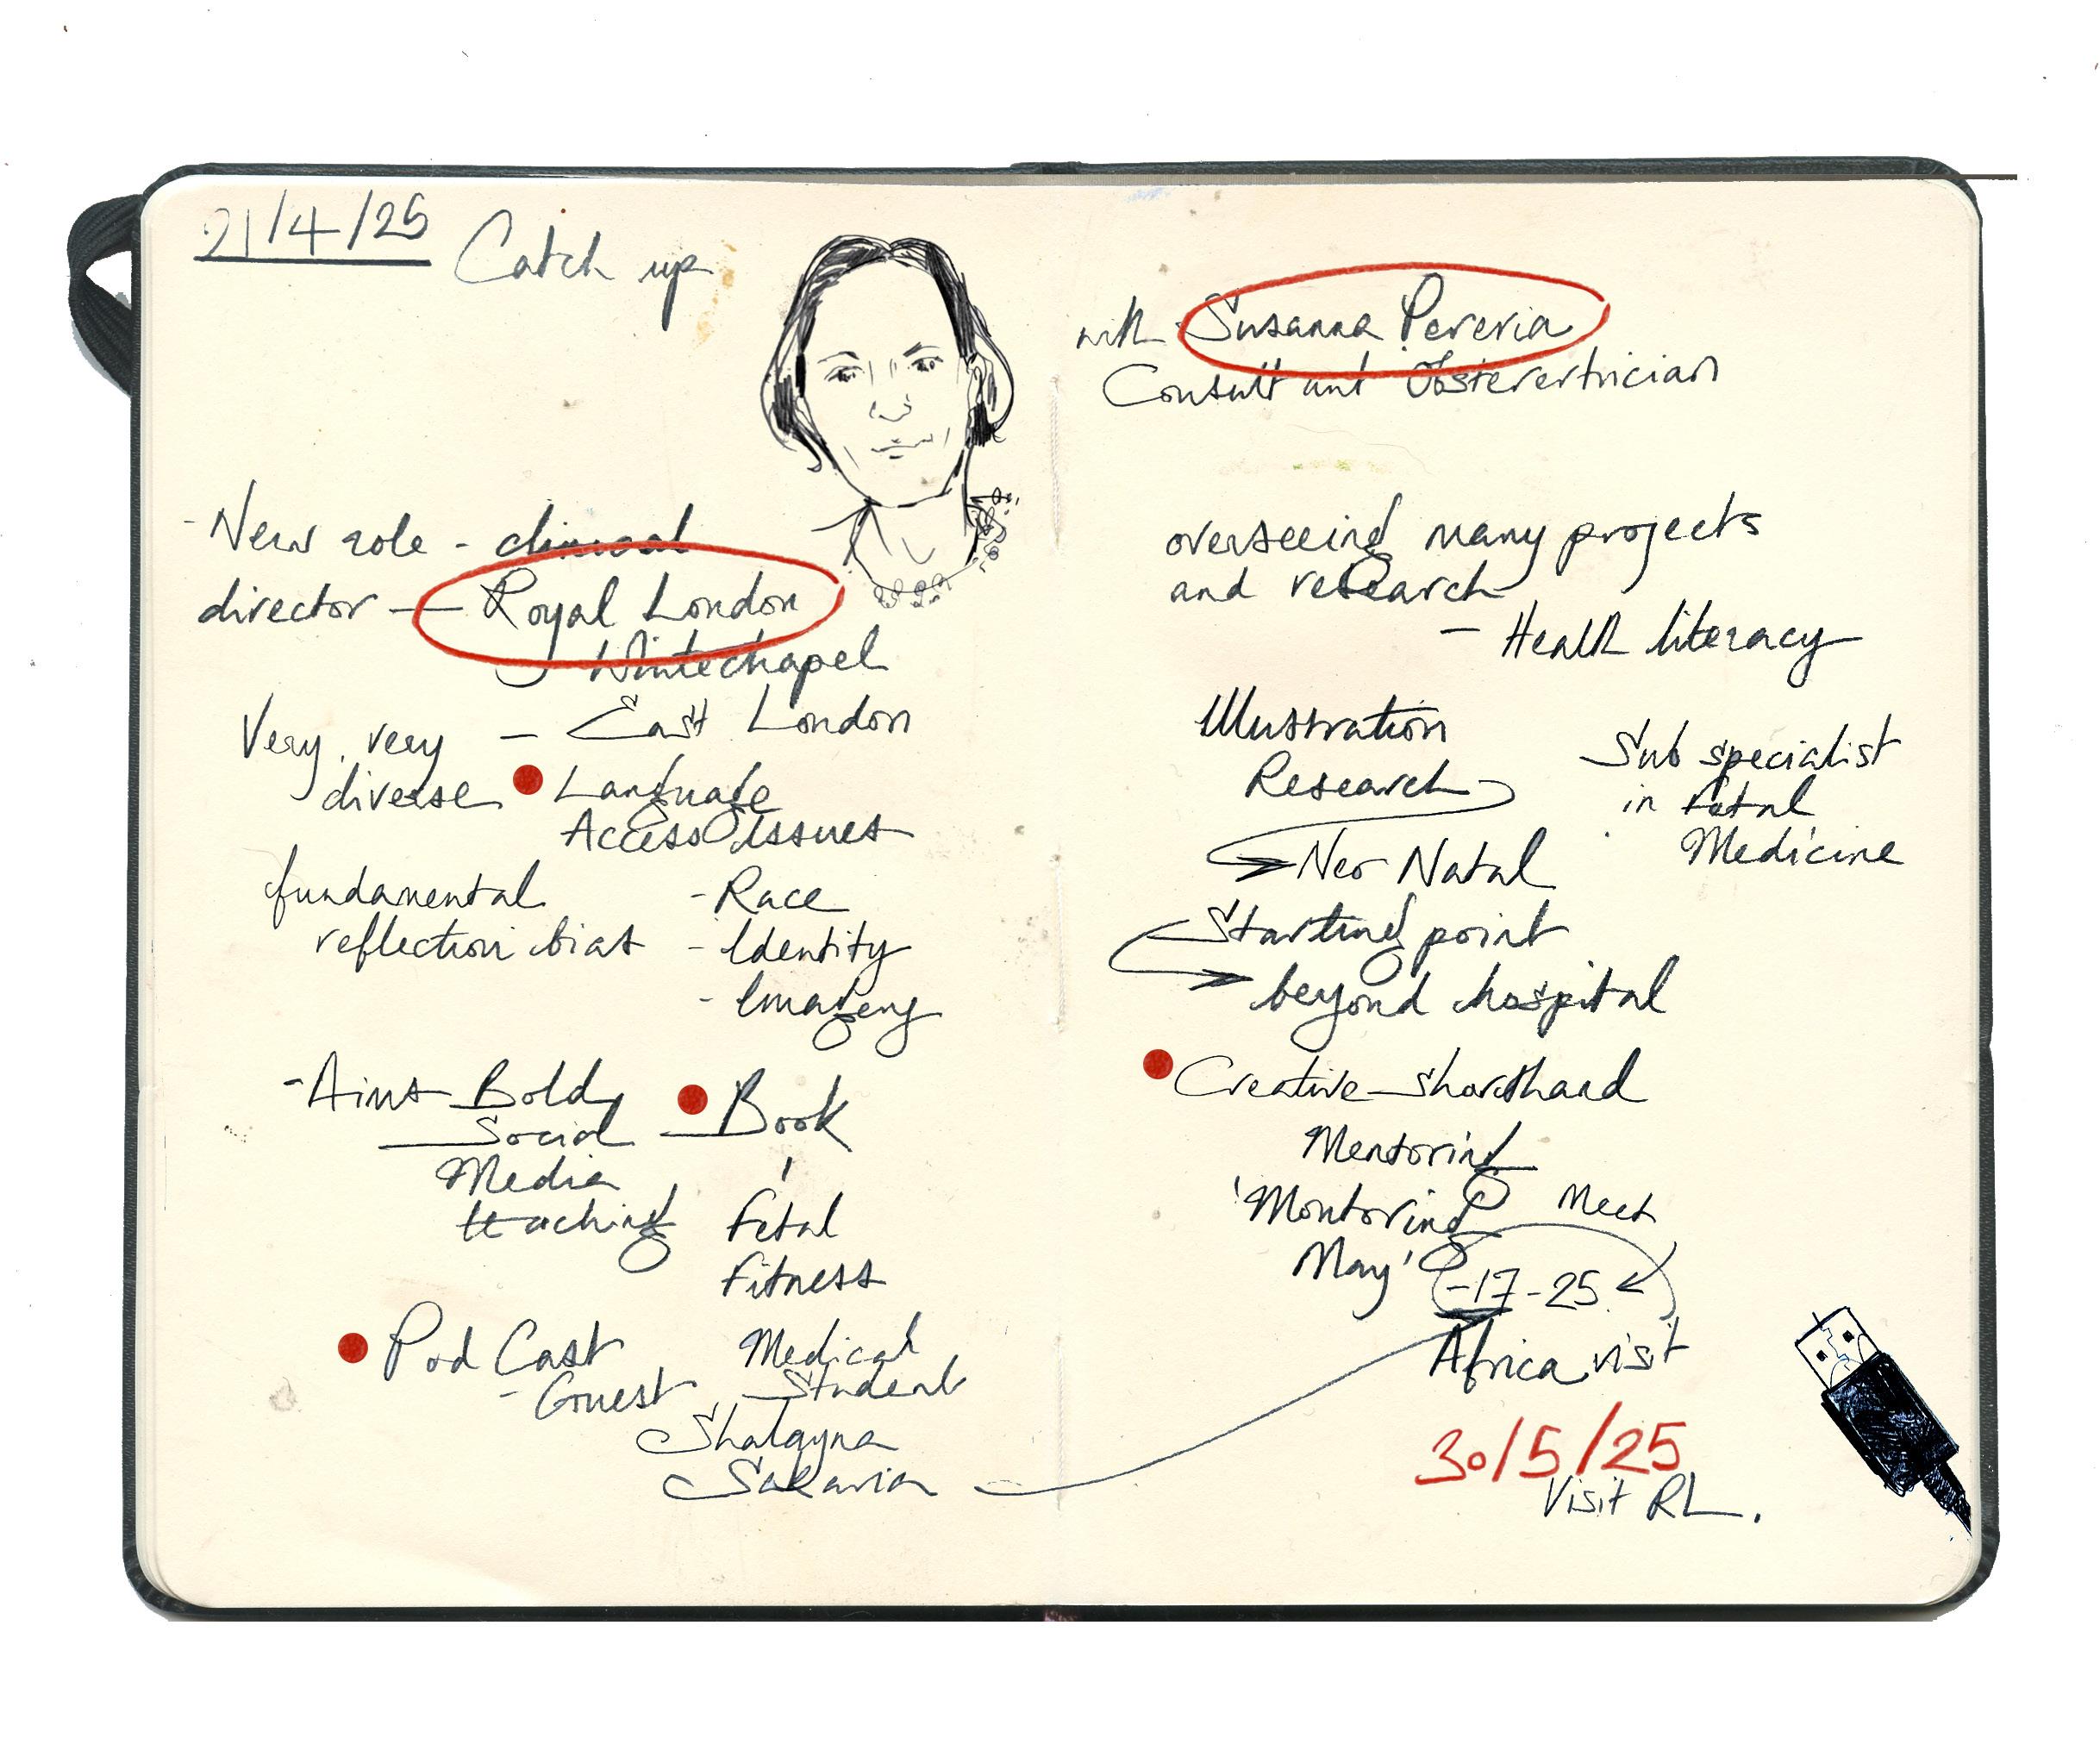 21/4/25
Catch up
- New role - clinical
director — Royal London
Whitechapel
Very, very — East London
diverse Language
Access issues
fundamental - Race
reflection bias - Identity
- Imagery
- Aims Bold Book
Social
Media
teaching Fetal
Fitness
Pod Cast Medical
- Guest Student
with Susanna Pereria
Consultant Obsterertrician
overseeing many projects
and research
- Health literacy
Illustration
Research
Sub specialist
in fetal
Medicine
Neo Natal
Starting point
beyond hospital
Creative shorthand
Mentoring
'Montoring Meet
May' -17-25
Africa visit
30/5/25
Visit RL.